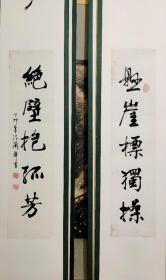 懸崖標獨操
絕壁抱孤芳